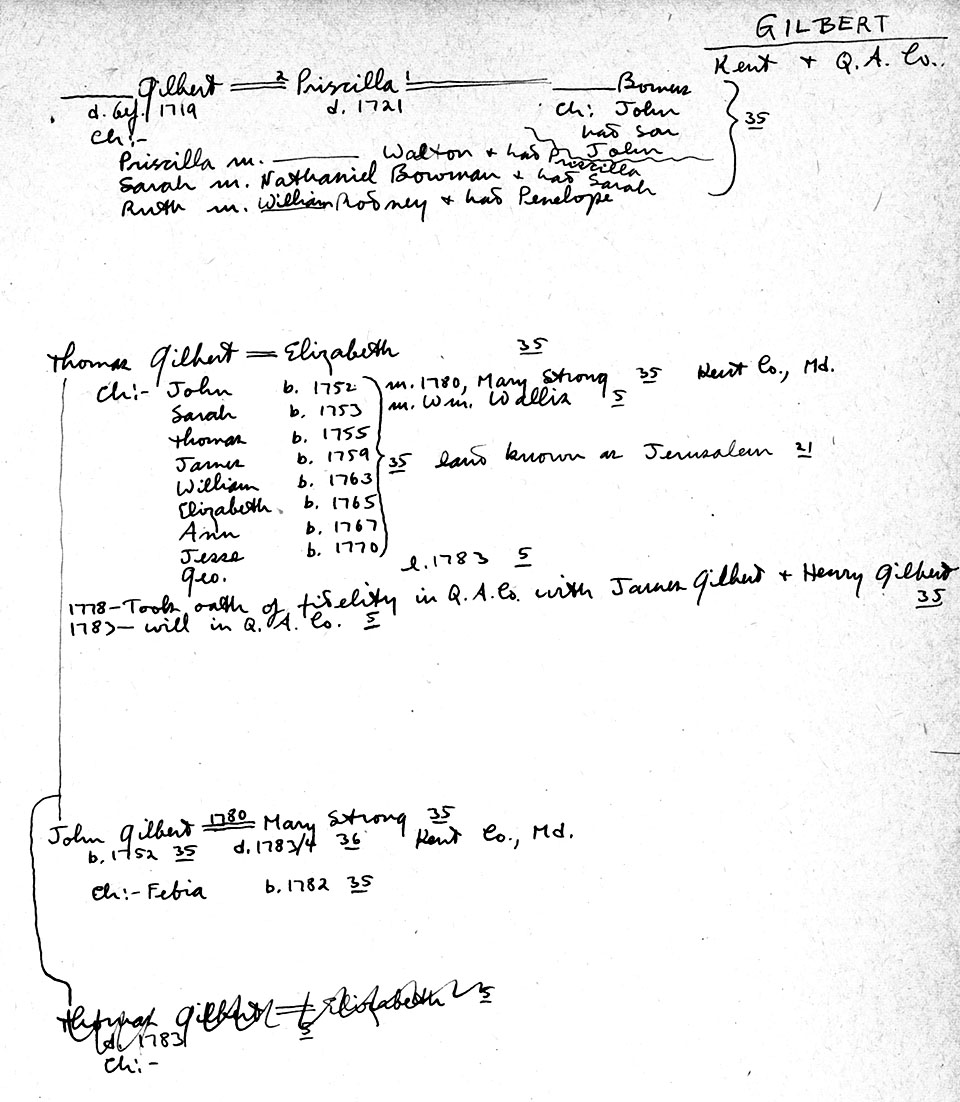 GILBERT
Kent + Q. A. Co..
______ Gilbert =2= Priscilla 1= ______ Bowers
d. bef. 1719 d. 1721 Ch: John
Ch:- had son 35
John
Priscilla m. ______ Walton + had Priscilla
Sarah m. Nathaniel Bowman + had Sarah
Ruth m. William Rodney + had Penelope
Thomas Gilbert = Elizabeth 35
Ch:- John b. 1752 m. 1780, Mary Strong 35 Kent Co., Md.
Sarah b. 1753 m. Wm. Wallis 5
Thomas b. 1755
James b. 1759 35 land known as Jerusalem 21
William b. 1763
Elizabeth b. 1765
Ann b. 1767
Jesse b. 1770
Geo. l. 1783 5
1778-Took oath of fidelity in Q.A.Co. with James Gilbert + Henry Gilbert 35
1783- will in Q. A. Co. 5
John Gilbert 1780 = Mary Strong 35
b. 1752 35 d. 1783/4 36 Kent Co., Md.
Ch:- Febia b. 1782 35
Thomas Gilbert = Elizabeth 5
d. 1783 5
Ch:-